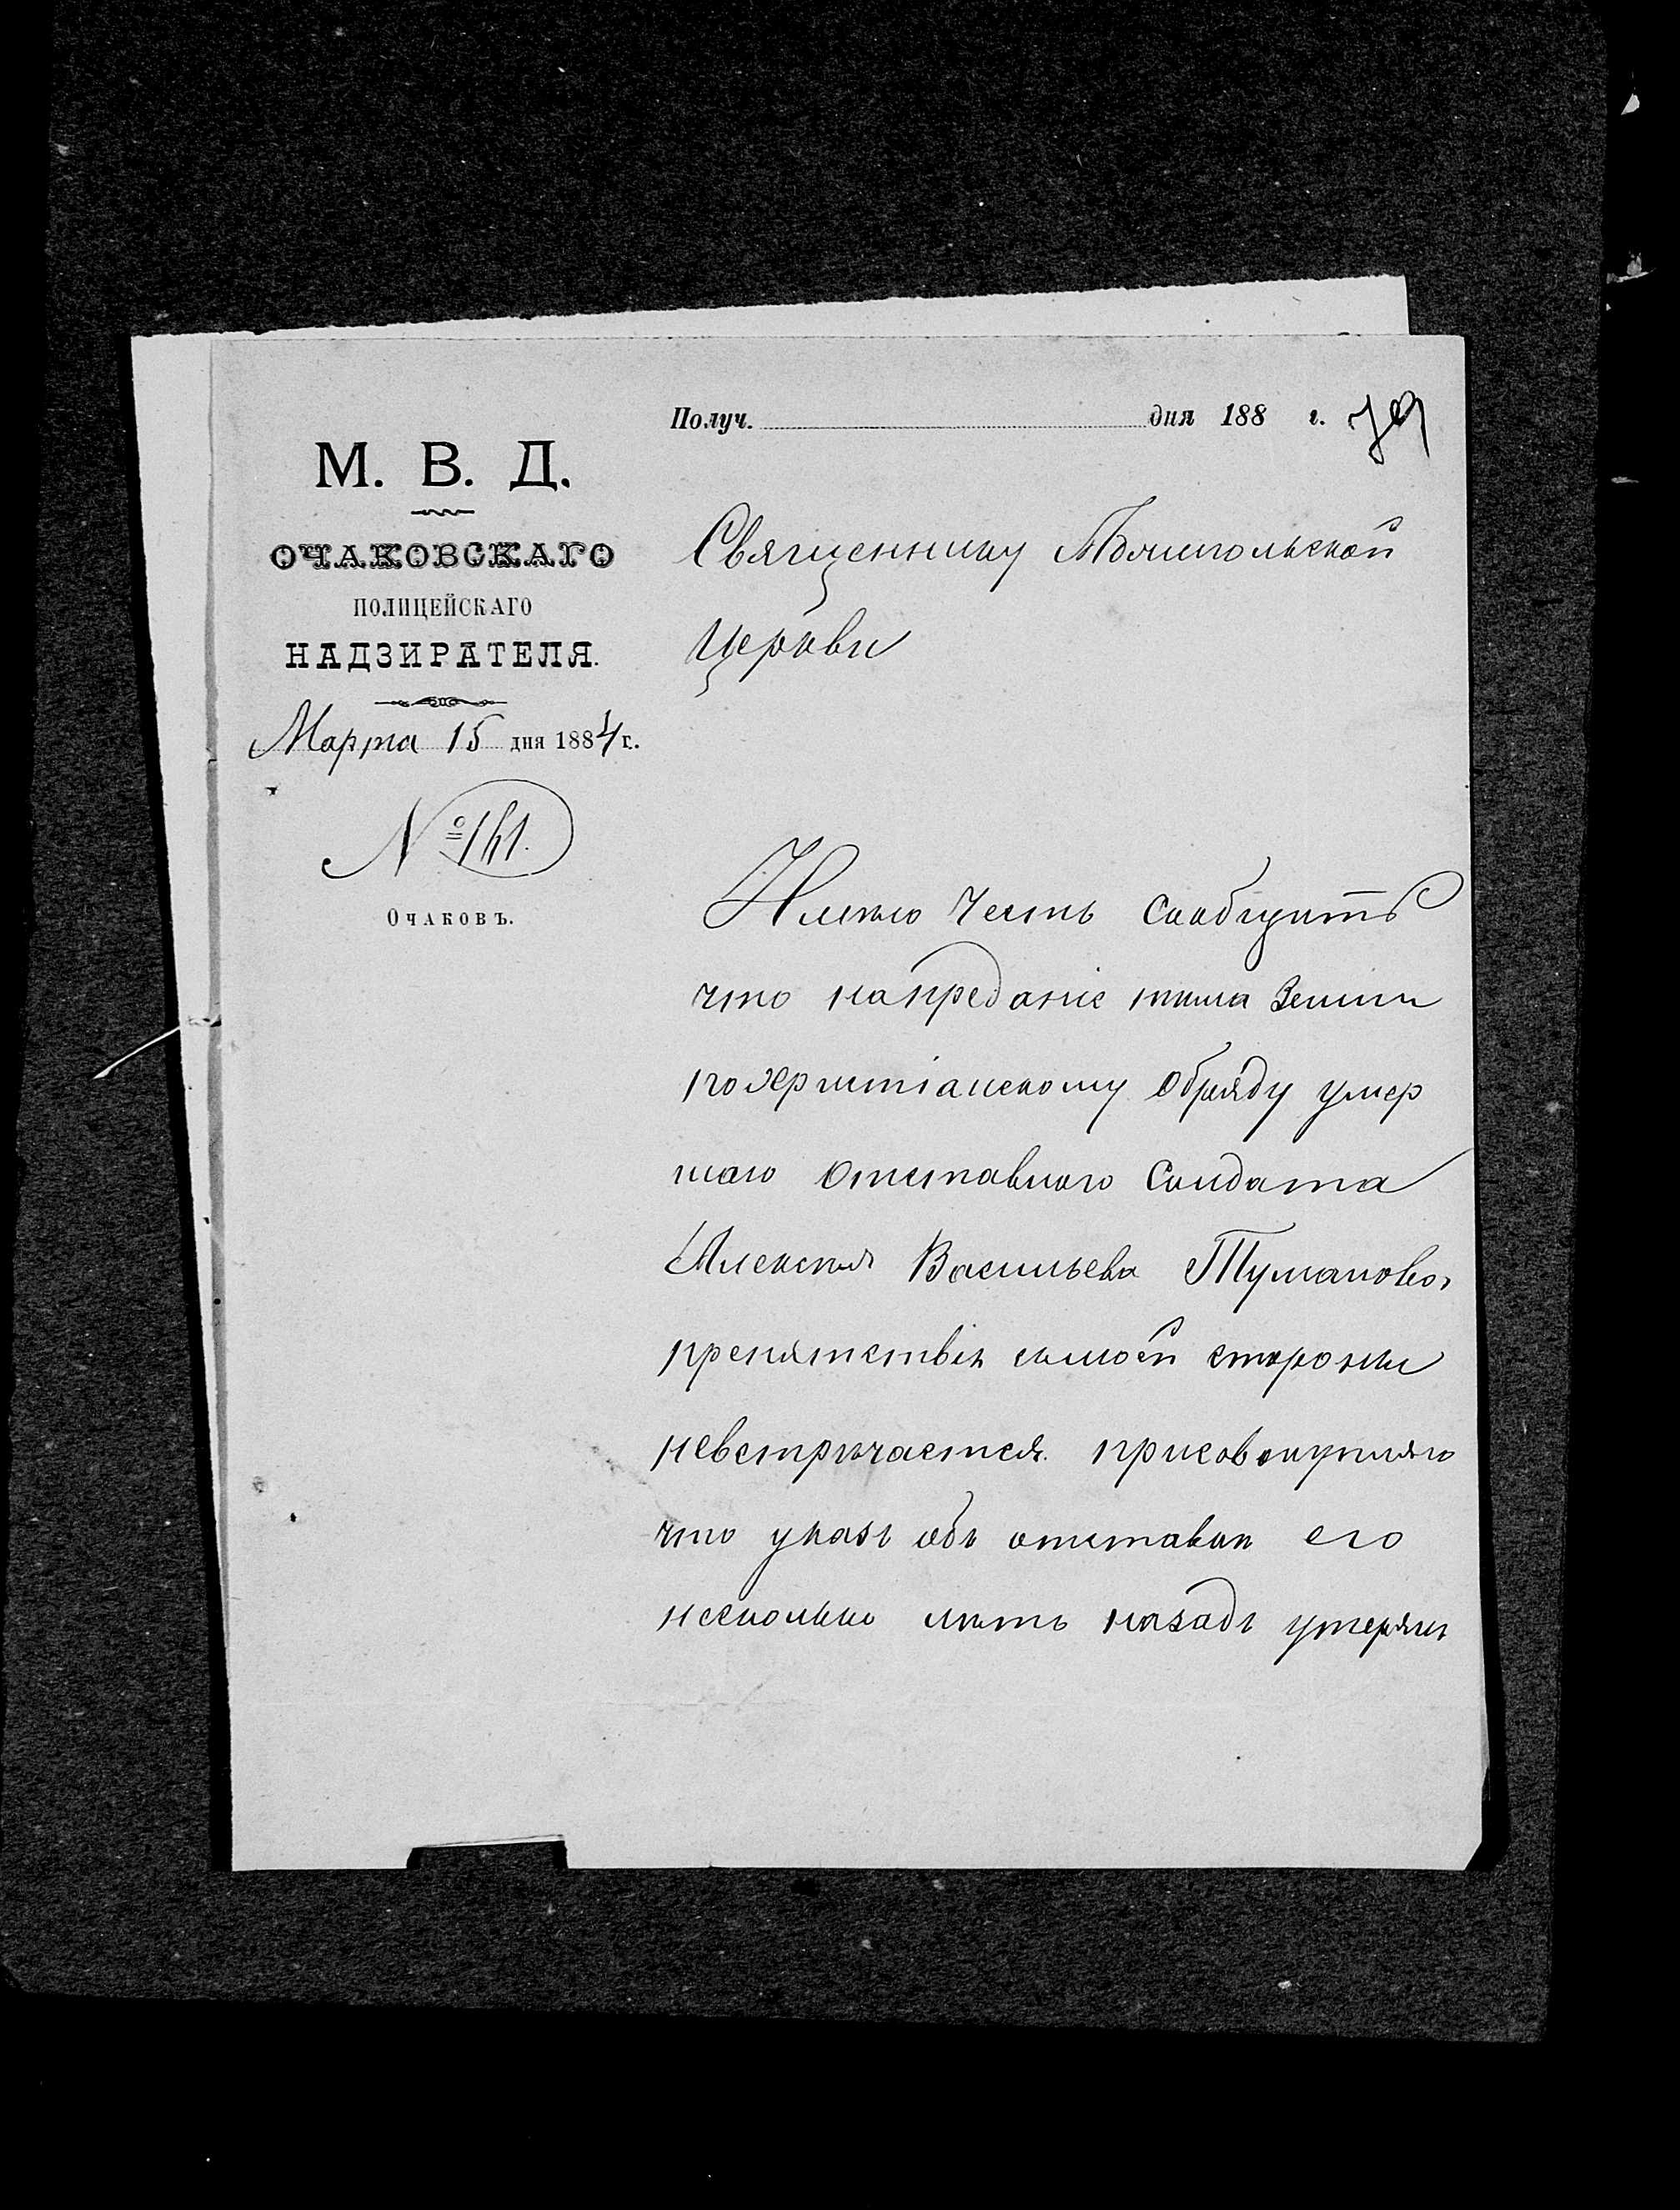 Получ. дня 188 г. 79
М. В. Д.
ОЧАКОВСКАГО
ПОЛИЦЕЙСКАГО
НАДЗИРАТЕЛЯ.
Марта 15 дня 1884 г.
№ 161.
Очаковъ.
Священнику
Церкви
Имѣю честь сообщить
что напреданіе тѣла земли
похристіанскому обряду умер
шаго отставного солдата
Алексѣя Васильева Туманова,
препятствія смоей стороны
невстрѣчается. присовокупляю
что указъ объ отставкѣ его
несколько лѣтъ назадъ утерянъ